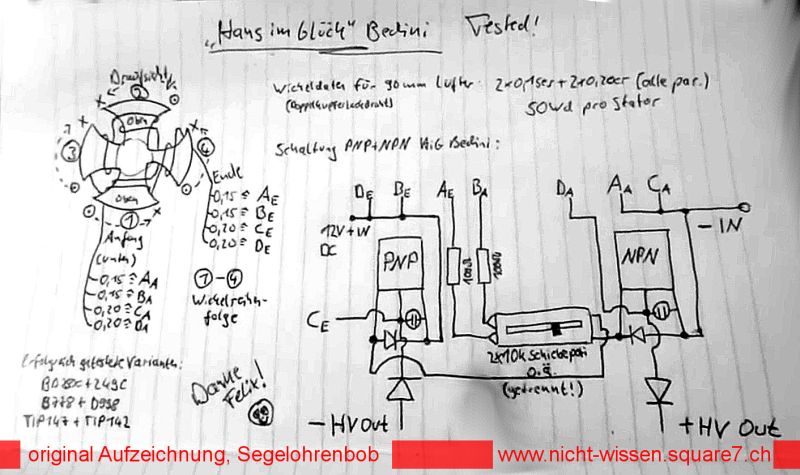 „Hans im Glück" Bedini Tested!
Draufsicht
Wickeldaten für 90mm Lüfter: 2x0,15er + 2x0,20er (alle par.)
(Doppelkupferlackdraht)
50Wd pro Stator
Schaltung PNP+NPN HiG Bedini:
Oben
2
3
4
1
Oben
Ende
0,15 ≙ AE
0,15 ≙ BE
0,20 ≙ CE
0,20 ≙ DE
Anfang
(unten)
0,15 ≙ AA
0,15 ≙ BA
0,20 ≙ CA
0,20 ≙ DA
1 - 4
Wickelreihen-
folge
DE BE AE BA DA AA CA
12V+IN
DC
-IN
PNP
NPN
100Ω
100Ω
CE
2x10k Schiebepoti
o.ä.
(getrennt!)
-HV Out
+HV Out
Erfolgreich getestete Varianten:
B778 + D998
TIP147 + TIP142
Danke
Felix!
original Aufzeichnung, Segelohrenbob
www.nicht-wissen.square7.ch